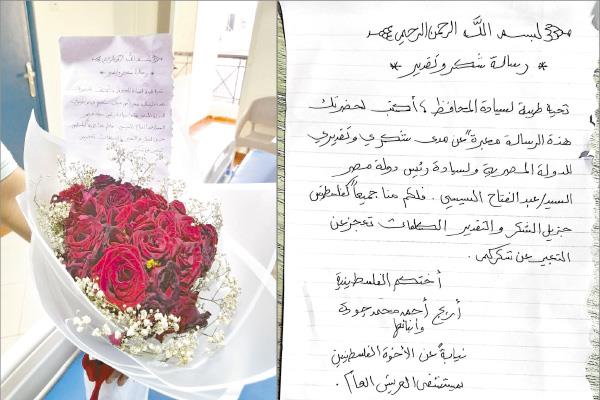 بسم الله الرحمن الرحيم
* رسالة شكر وتقدير *
تحية طيبة لسيادة المحافظ ، أكتب لحضرتك
هذه الرسالة معبرةً عن مدى شكري وتقديري
للدولة المصرية ولسيادة رئيس دولة مصر
السيد/عبد الفتاح السيسي . فلكم منا جميعاً كفلسطين
جزيل الشكر والتقدير الكلمات تعجز عن
التعبير عن شكركم .
أختكم الفلسطينية
أريج أحمد محمد جودة
وابنائها
نيابةً عن الأخوة الفلسطينيين
بمستشفى العريش العام .